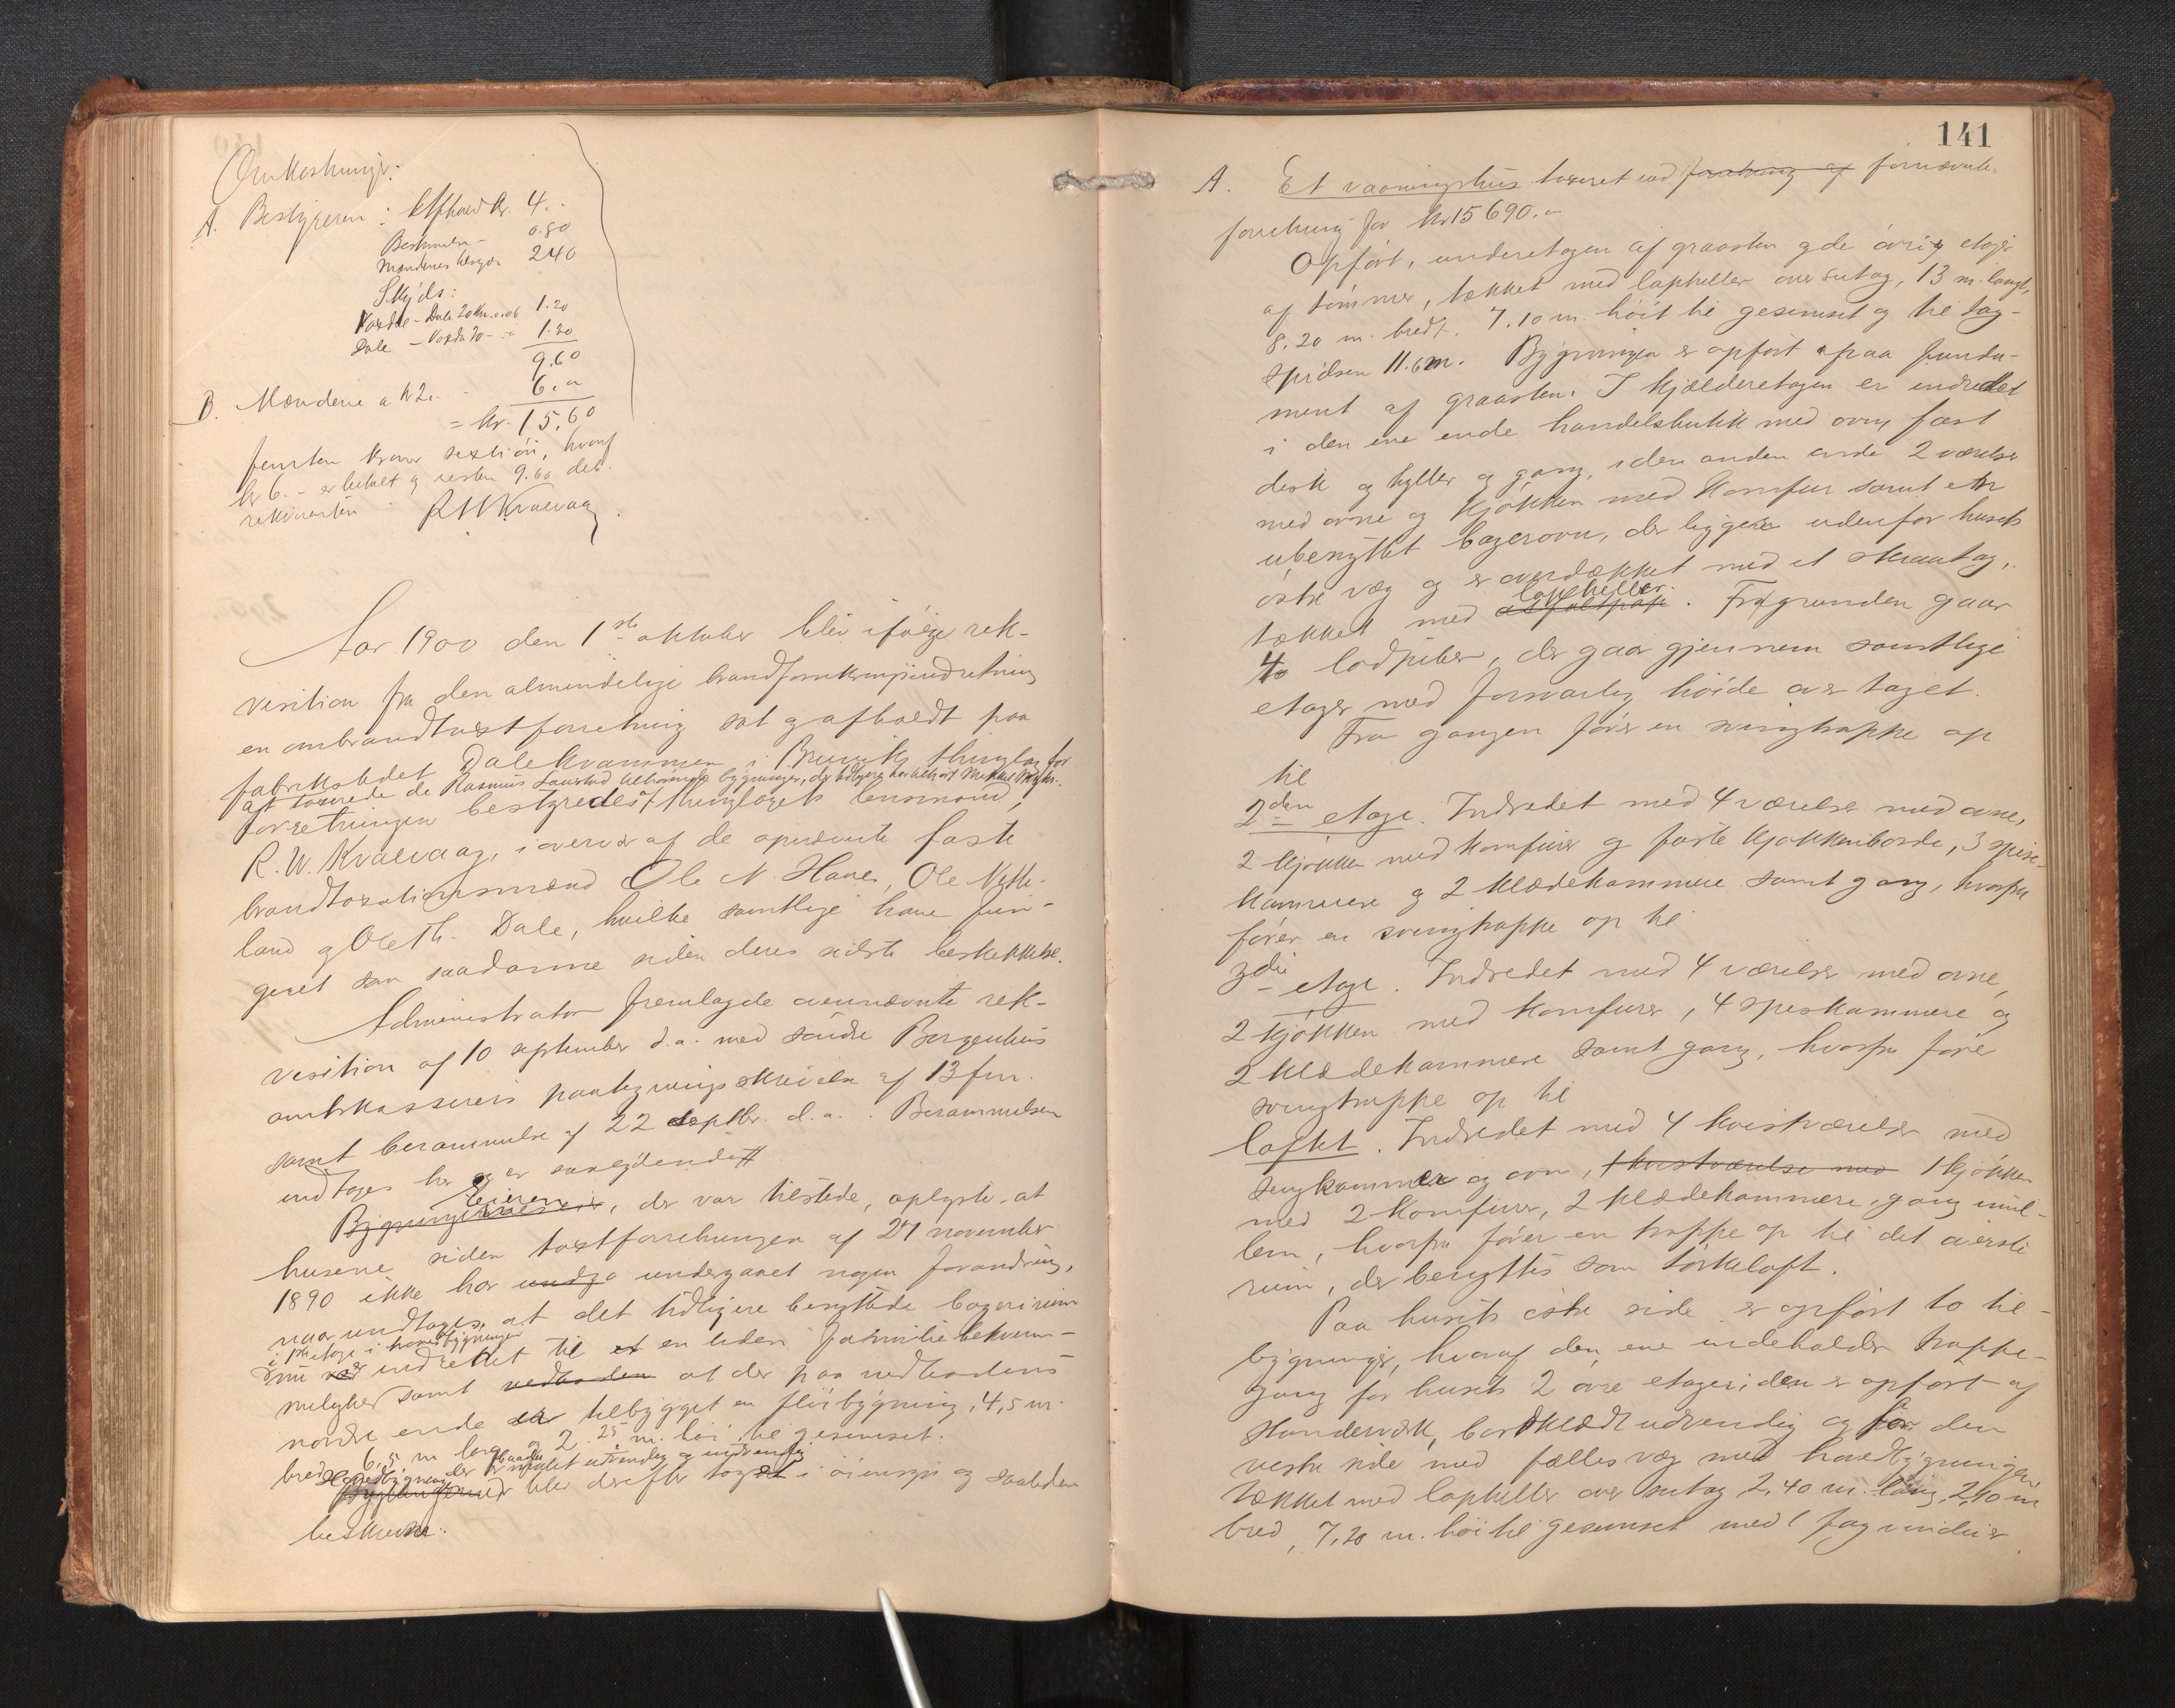 Omkostninger:
A. Bestyreren: Afhold kr. 4.-
Berammelse - 0.80
Mændenes tilsigelse 2.40
Skyds:
Vaxdal - Dale 20 km. a 06 1.20
Dale - Vaxdal 20 - - 1.20
9.60
B. Mændene a kr 2.- 6.-
= kr. 15,60
femten kroner sexti øre, hvoraf
kr 6.- er betalt og resten 9.60 deb.
rekvirenten RWKvalvaag.
Aar 1900 den 1ste oktober blev ifølge rek-
visition fra den almindelige brandforsikringsindretning
en ombrandtaxtforretning sat og afholdt paa
fabrikstedet Dalekvammen i Bruviks thinglag for
at taxere de Rasmus tilhørende bygninger, der tidligere har tilhørt Mikkel
Forretningen bestyredes af thinglagets lensmand,
R. W. Kvalvaag, i overvær af de opnævnte faste
brandtaxationsmænd Ole N. Hanes, Ole Nette-
land og Ole Th. Dale, hvilke samtlige have fun-
geret som saadanne siden deres sidste beskikkelse.
Administrator fremlagde ovennævnte rek-
visition af 10 september d.a. med søndre Bergenhus
amtskasserers paategningsskrivelse af 13 s.m.
samt berammelse af 22 septbr. d.a. Berammelsen
indtages her og er saalydende #
Bygningernes Eieren, der var tilstede, oplyste at
husene siden taxtforretningen af 27 november
1890 ikke har undga undergaaet nogen forandring,
naar undtages, at det tidligere benyttede bagerirum
i 1ste etage i hovedbygningen
nu er indrettet til et en liden familiebekvem-
melighed samt vedboden at der paa vedbodens
nordre ende er tilbygget en fløibygning, 4,5 m.
bred, 6,5 m lang og 2.25 m. høi til gesimset.
Hovedbygningen der er malet udvendig og indvendig
blev derefter taget i øiensyn og saaledes
beskreven:
141
A. Et vaaningshus taxeret ved forretning af fornævnte
forretning for kr 15690.-
Opført, underetagen af graasten og de øvrige etager
af tømmer, tækket med lapheller over sutag, 13 m. langt,
8.20 m. bredt. 7.10 m. høit til gesimset og til tag-
spidsen 11.6 m. Bygningen er opført paa funda-
ment af graasten. I kjælderetagen er indredet
i den ene ende handelsbutik med ovn, fast
disk og hylder og gang, i den anden ende 2 værelser
med ovne og kjøkken med komfur samt en
ubenyttet bagerovn, der ligger udenfor husets
østre væg og er overdækket med et skraatag,
lapheller.
tækket med asfaltpap. Fra grunden gaar
4 lodpiber, der gaar gjennem samtlige
etager med forsvarlig høide over taget.
Fra gangen fører en svingtrappe op
til
2den etage. Indredet med 4 værelser med ovne,
2 kjøkken med komfurer og faste kjøkkenborde, 3 spise-
kammere og 2 klædekammere samt gang, hvorfra
fører en svingtrappe op til
3die etage. Indredet med 4 værelser med ovne,
2 kjøkken med komfurer, 4 spiskammere og
2 klædekammere samt gang, hvorfra fører
svingtrappe op til
loftet. Indredet med 4 kvistværelser med
sengkammer og ovn, 1 kvistværelse med 1 kjøkken
med 2 komfurer, 2 klædekammere, gang imel-
lem, hvorfra fører en trappe op til det øverste
rum, der benyttes som tørkeloft.
Paa husets østre side er opført to til-
bygninger, hvoraf den ene indeholder trappe-
gang for husets 2 øvre etager; den er opført af
stenderværk, bordklædt udvendig og har den
vestre side med fælles væg med hovedbygningen
tækket med lapheller over sutag 2,40 m. lang, 2,10 m
bred, 7,20 m. høi til gesimset med 1 fag vinduer